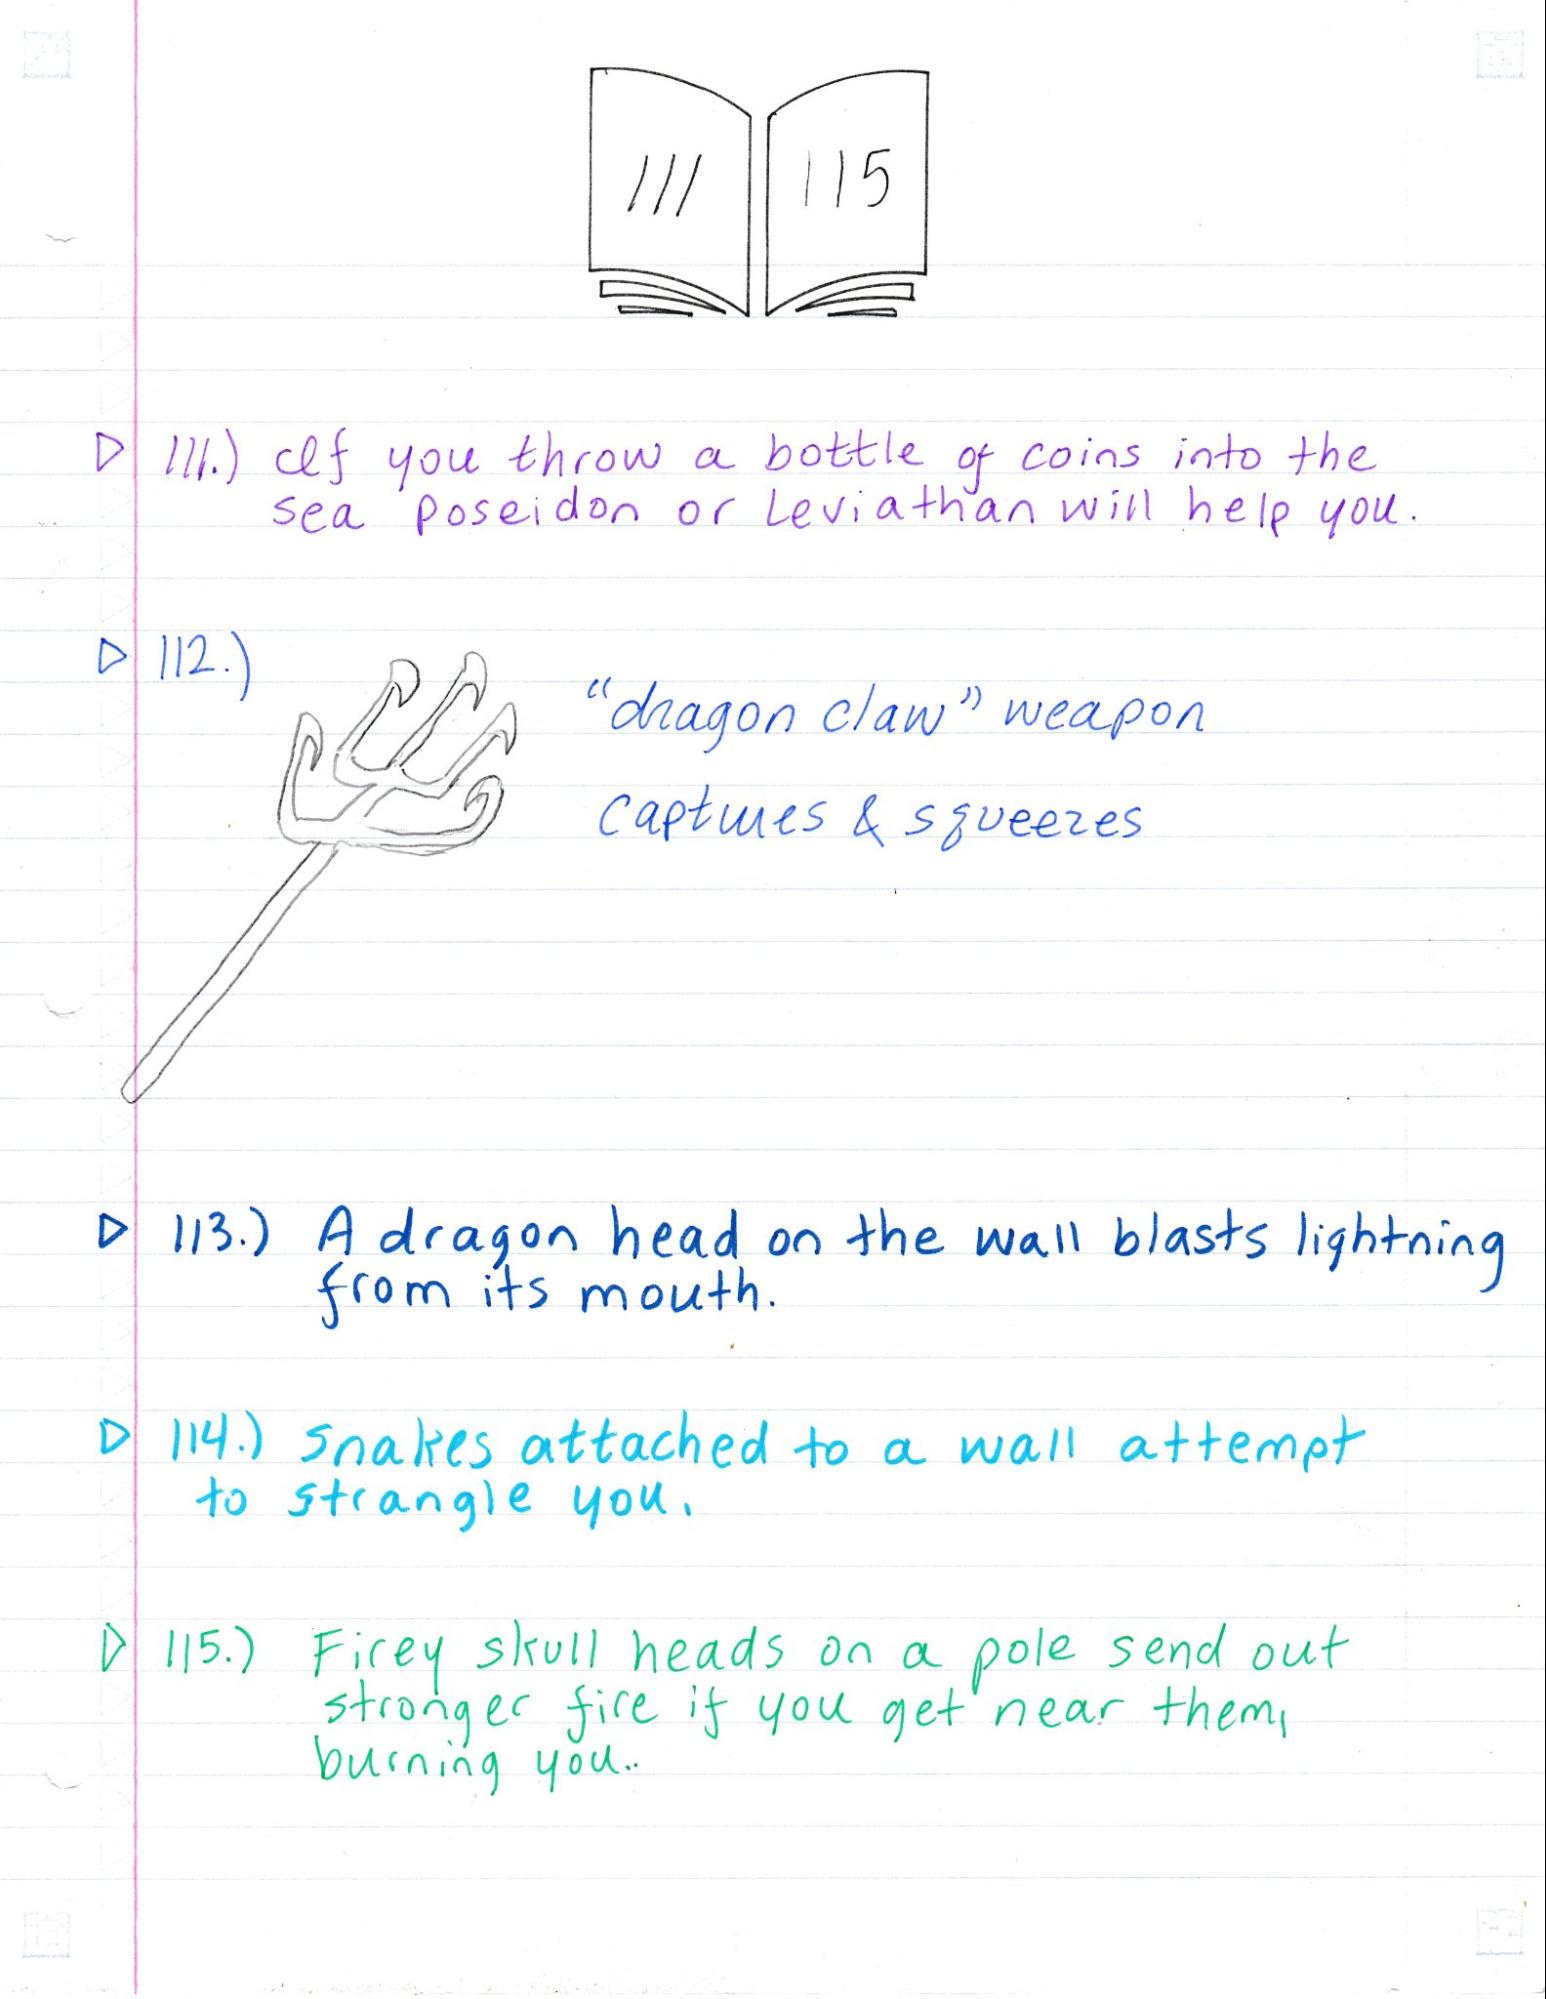 111
115
111.) If you throw a bottle of coins into the
sea Poseidon or Leviathan will help you.
112.)
"dragon claw" weapon
captures & squeezes
113.) A dragon head on the wall blasts lightning
from its mouth.
114.) Snakes attached to a wall attempt
to strangle you.
115.) Firey skull heads on a pole send out
stronger fire if you get near them,
burning you..